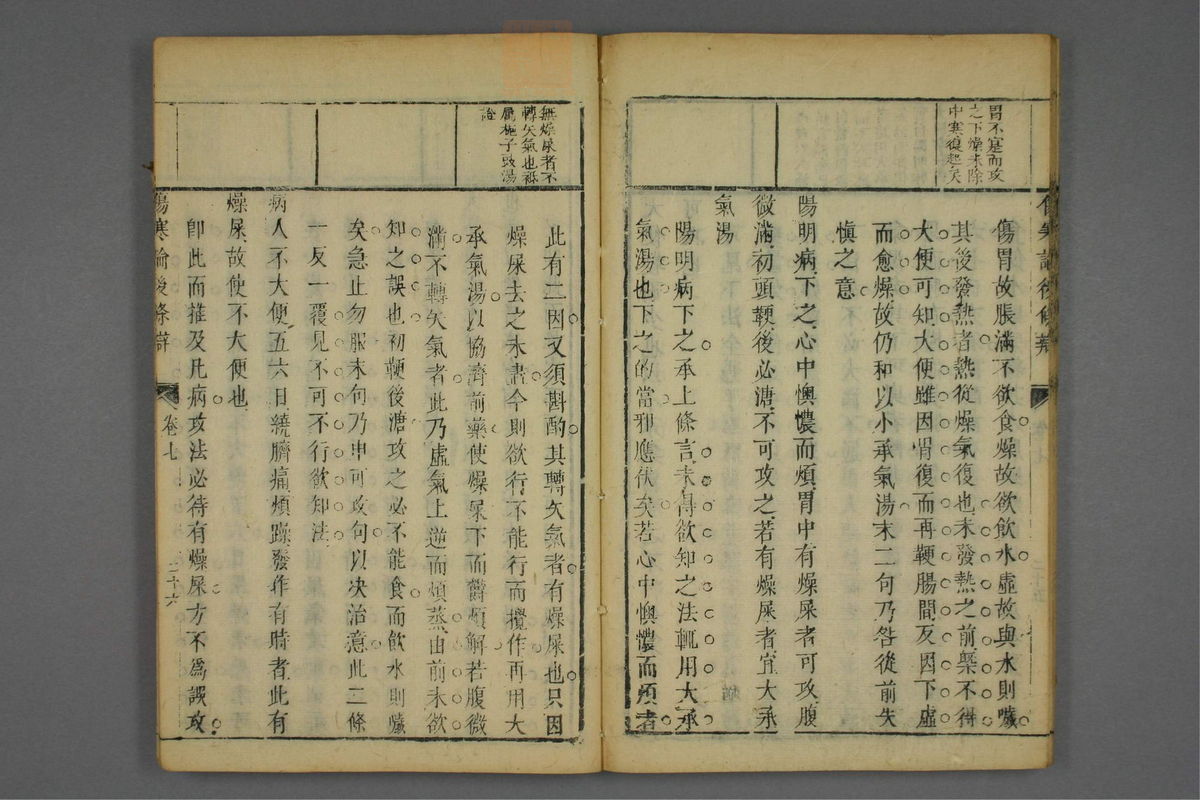 胃不寔而攻
之下燥未除
中寒復起矣
傷胃故脹滿不欲食燥故欲飲水虛故與水則噦
其後發熱者熱從燥氣復也未發熱之前槩不得
大便可知大便雖因胃復而再鞕腸間反因下虛
而愈燥故仍和以小承氣湯末二句乃咎從前失
愼之意
陽明病下之心中懊憹而煩胃中有燥屎者可攻腹
微滿初頭鞕後必溏不可攻之若有燥屎者宜大承
氣湯
陽明病下之承上條言未得欲知之法輒用大承
氣湯也下之的當邪應伏矣若心中懊憹而煩者
無燥屎者不
轉矢氣也祗
屬梔子豉湯
證
此有二因又須斟酌其轉矢氣者有燥屎也只因
燥屎去之未盡今則欲行不能行而攪作再用大
承氣湯以協濟前藥使燥屎下而鬱煩解若腹微
滿不轉矢氣者此乃虛氣上逆而煩蒸由前未欲
知之誤也初鞕後溏攻之必不能食而飲水則噦
矣急止勿服末句乃申可攻句以决治意此二條
一反一覆見不可不行欲知法
病人不大便五六日繞臍痛煩躁發作有時者此有
燥屎故使不大便也
卽此而推及凡病攻法必待有燥屎方不爲誤攻
傷寒論後條辯
卷七
二十六